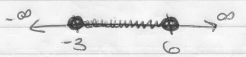 -∞ ∞
-3 6